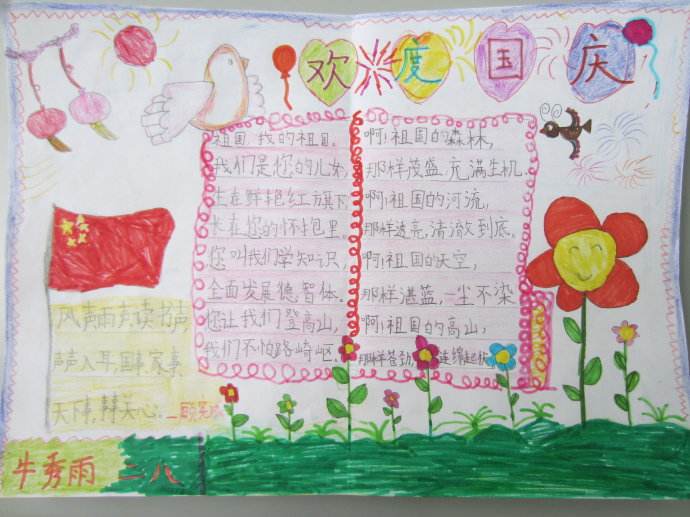 欢度国庆
祖国,我的祖国。
我们是您的儿女,
生在鲜艳红旗下,
长在您的怀抱里。
您叫我们学知识,
全面发展德、智体。
您让我们登高山,
我们不怕路崎岖。
啊!祖国的森林,
那样茂盛,充满生机。
啊!祖国的河流,
那样透亮,清澈到底。
啊!祖国的天空,
那样湛蓝,一尘不染
啊!祖国的高山,
那样苍劲,连绵起伏
风声雨声读书声,
声声入耳,国事家事
天下事,事关心。
牛秀雨 二八